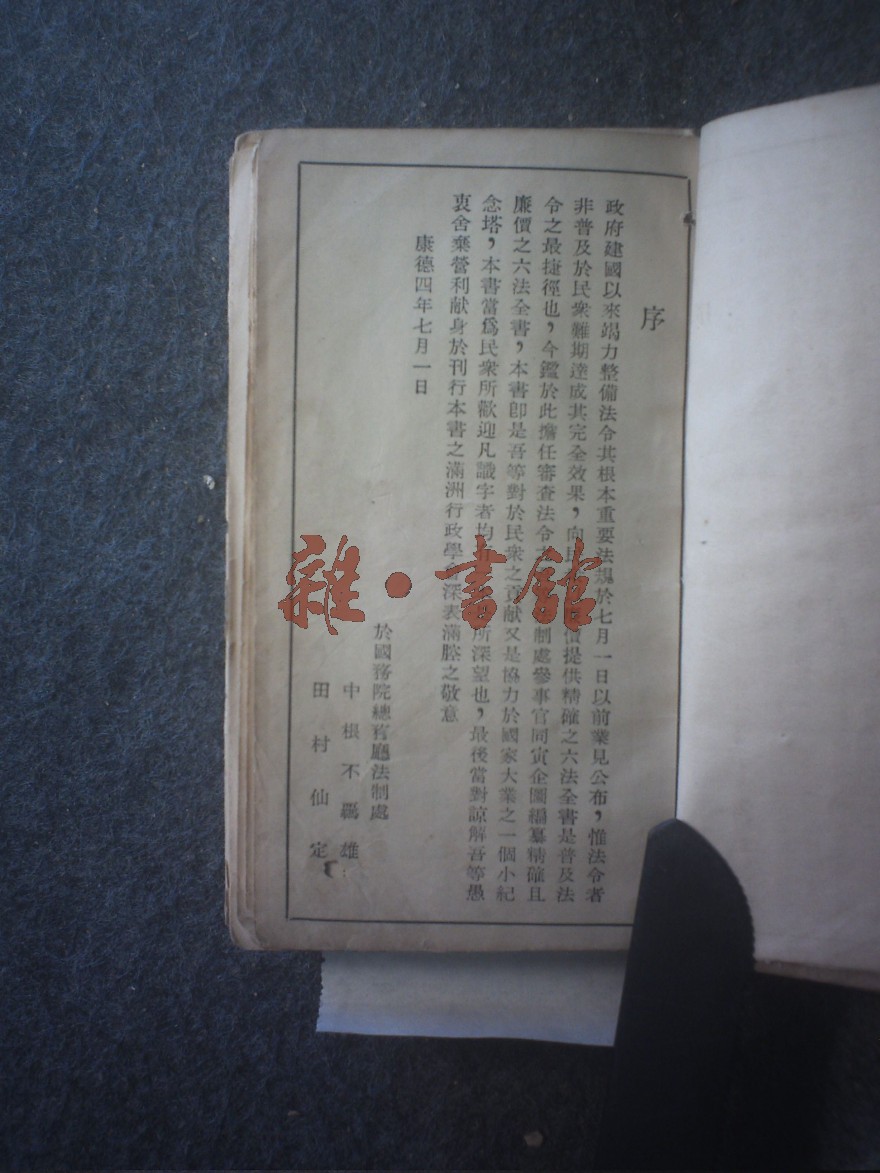 序
政府建國以來竭力整備法令其根本重要法規於七月一日以前業見公布，惟法令者
非普及於民衆難期達成其完全效果，向民價提供精確之六法全書是普及法
令之最捷徑也，今鑑於此擔任審查法令之制處參事官同寅企圖編纂精確且
廉價之六法全書，本書卽是吾等對於民衆之貢献又是協力於國家大業之一個小紀
念塔，本書當爲民衆所歡迎凡識字者均所深望也，最後當對諒解吾等愚
衷舍棄營利献身於刊行本書之滿洲行政學會深表滿腔之敬意
康德四年七月一日
於國務院總務廳法制處
中根不羈雄
田村仙定
雜·書館